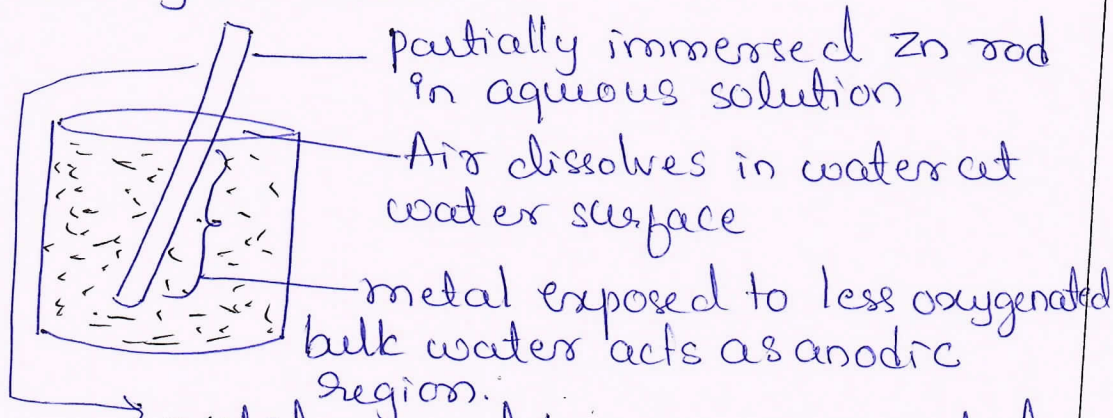 partially immersed Zn rod
in aqueous solution
Air dissolves in water at
water surface
metal exposed to less oxygenated
bulk water acts as anodic
region.